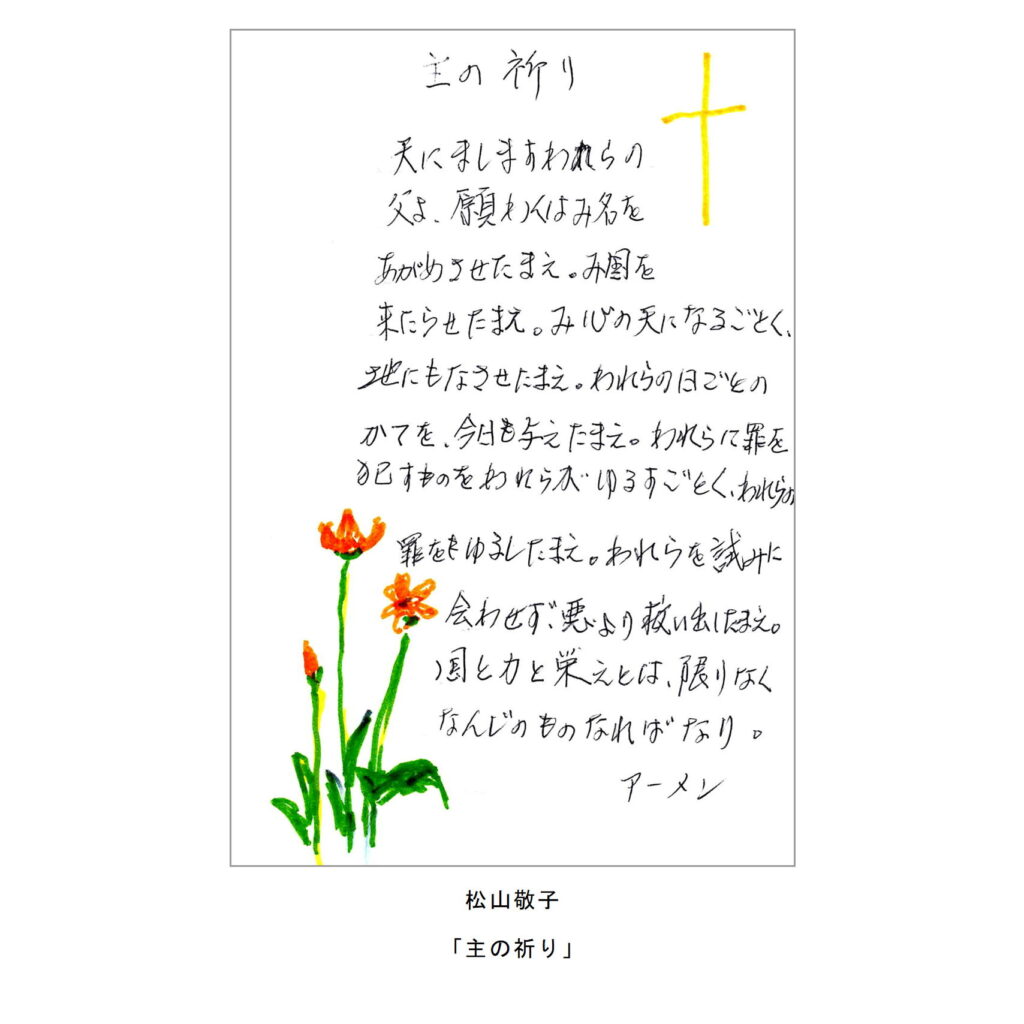 主の祈り
天にましますわれらの
父よ、願わくはみ名を
あがめさせたまえ。み国を
来たらせたまえ。み心の天になるごとく、
地にもなさせたまえ。われらの日ごとの
かてを、今日も与えたまえ。われらに罪を
犯すものをわれらが ゆるすごとく、われらの
罪をもゆるしたまえ。われらを試みに
会わせず、悪より救い出したまえ。
国と力と栄えとは、限りなく
なんじのものなればなり。
アーメン
松山敬子
「主の祈り」